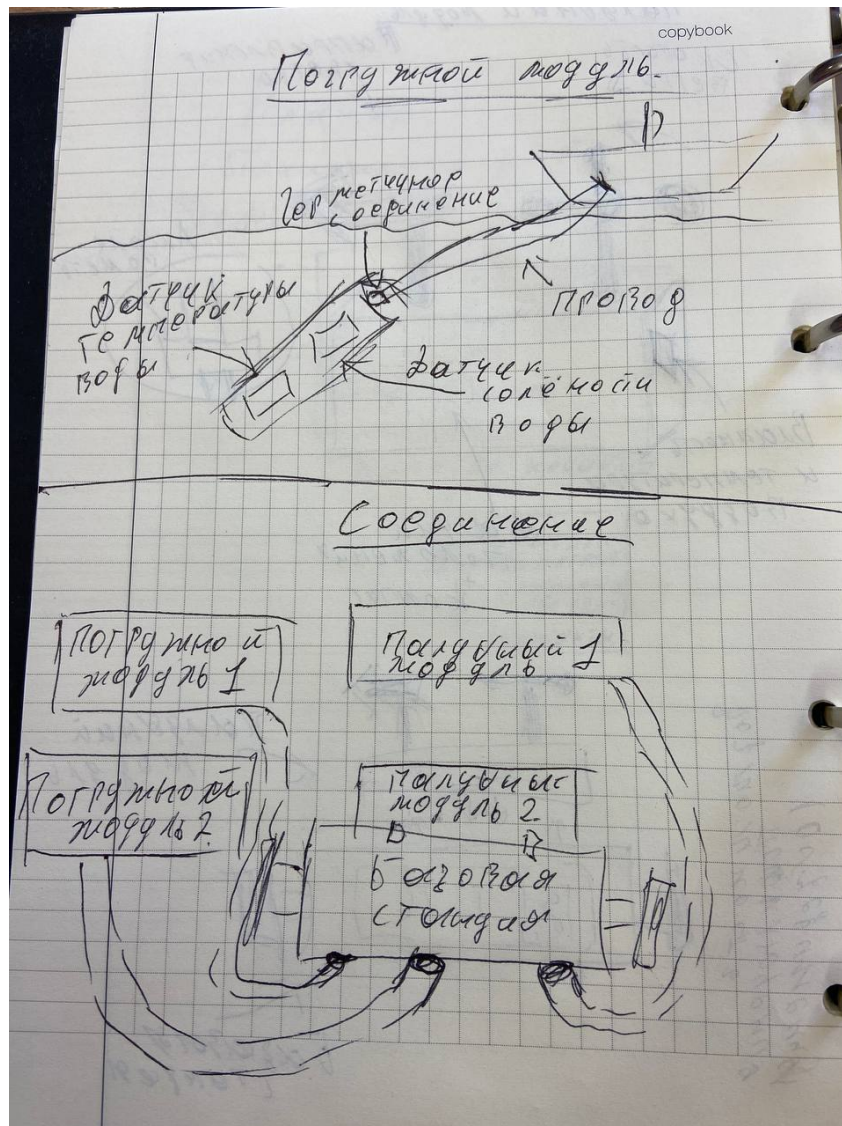 copybook
Погружной модуль.
Герметичное
соединение
Датчик
температуры
воды
провод
Датчик
солёности
воды
Соединение
Погружной
модуль 1
Палубный 1
модуль
Погружной
модуль 2
Палубный
модуль 2
Базовая
станция